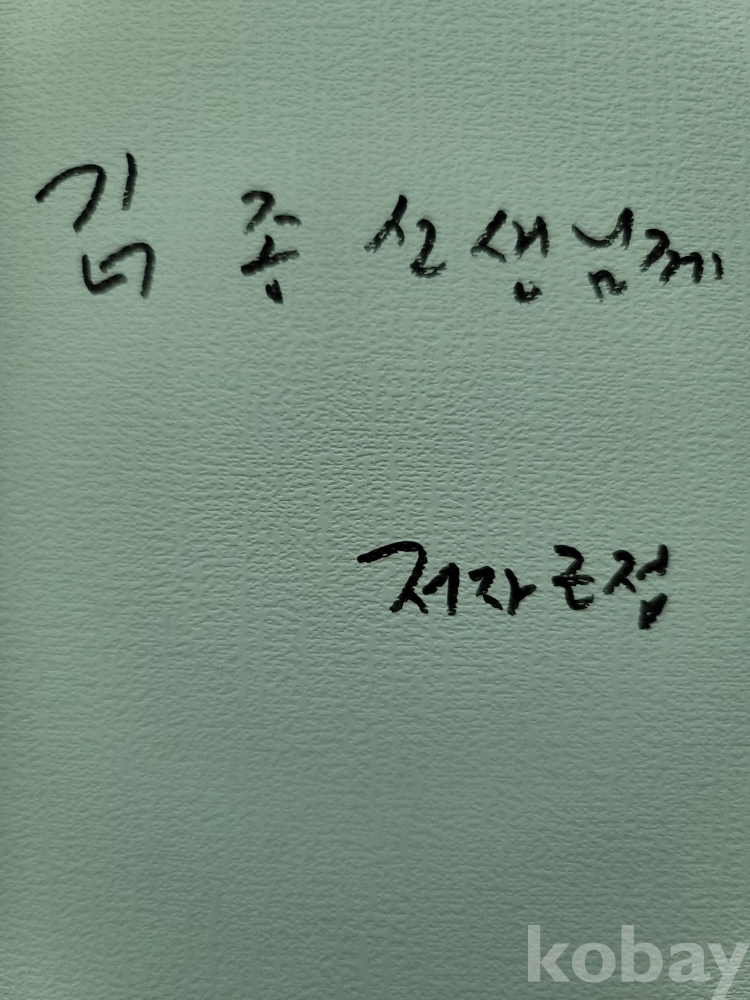 김 종 선생님께
저자 근접
kobay